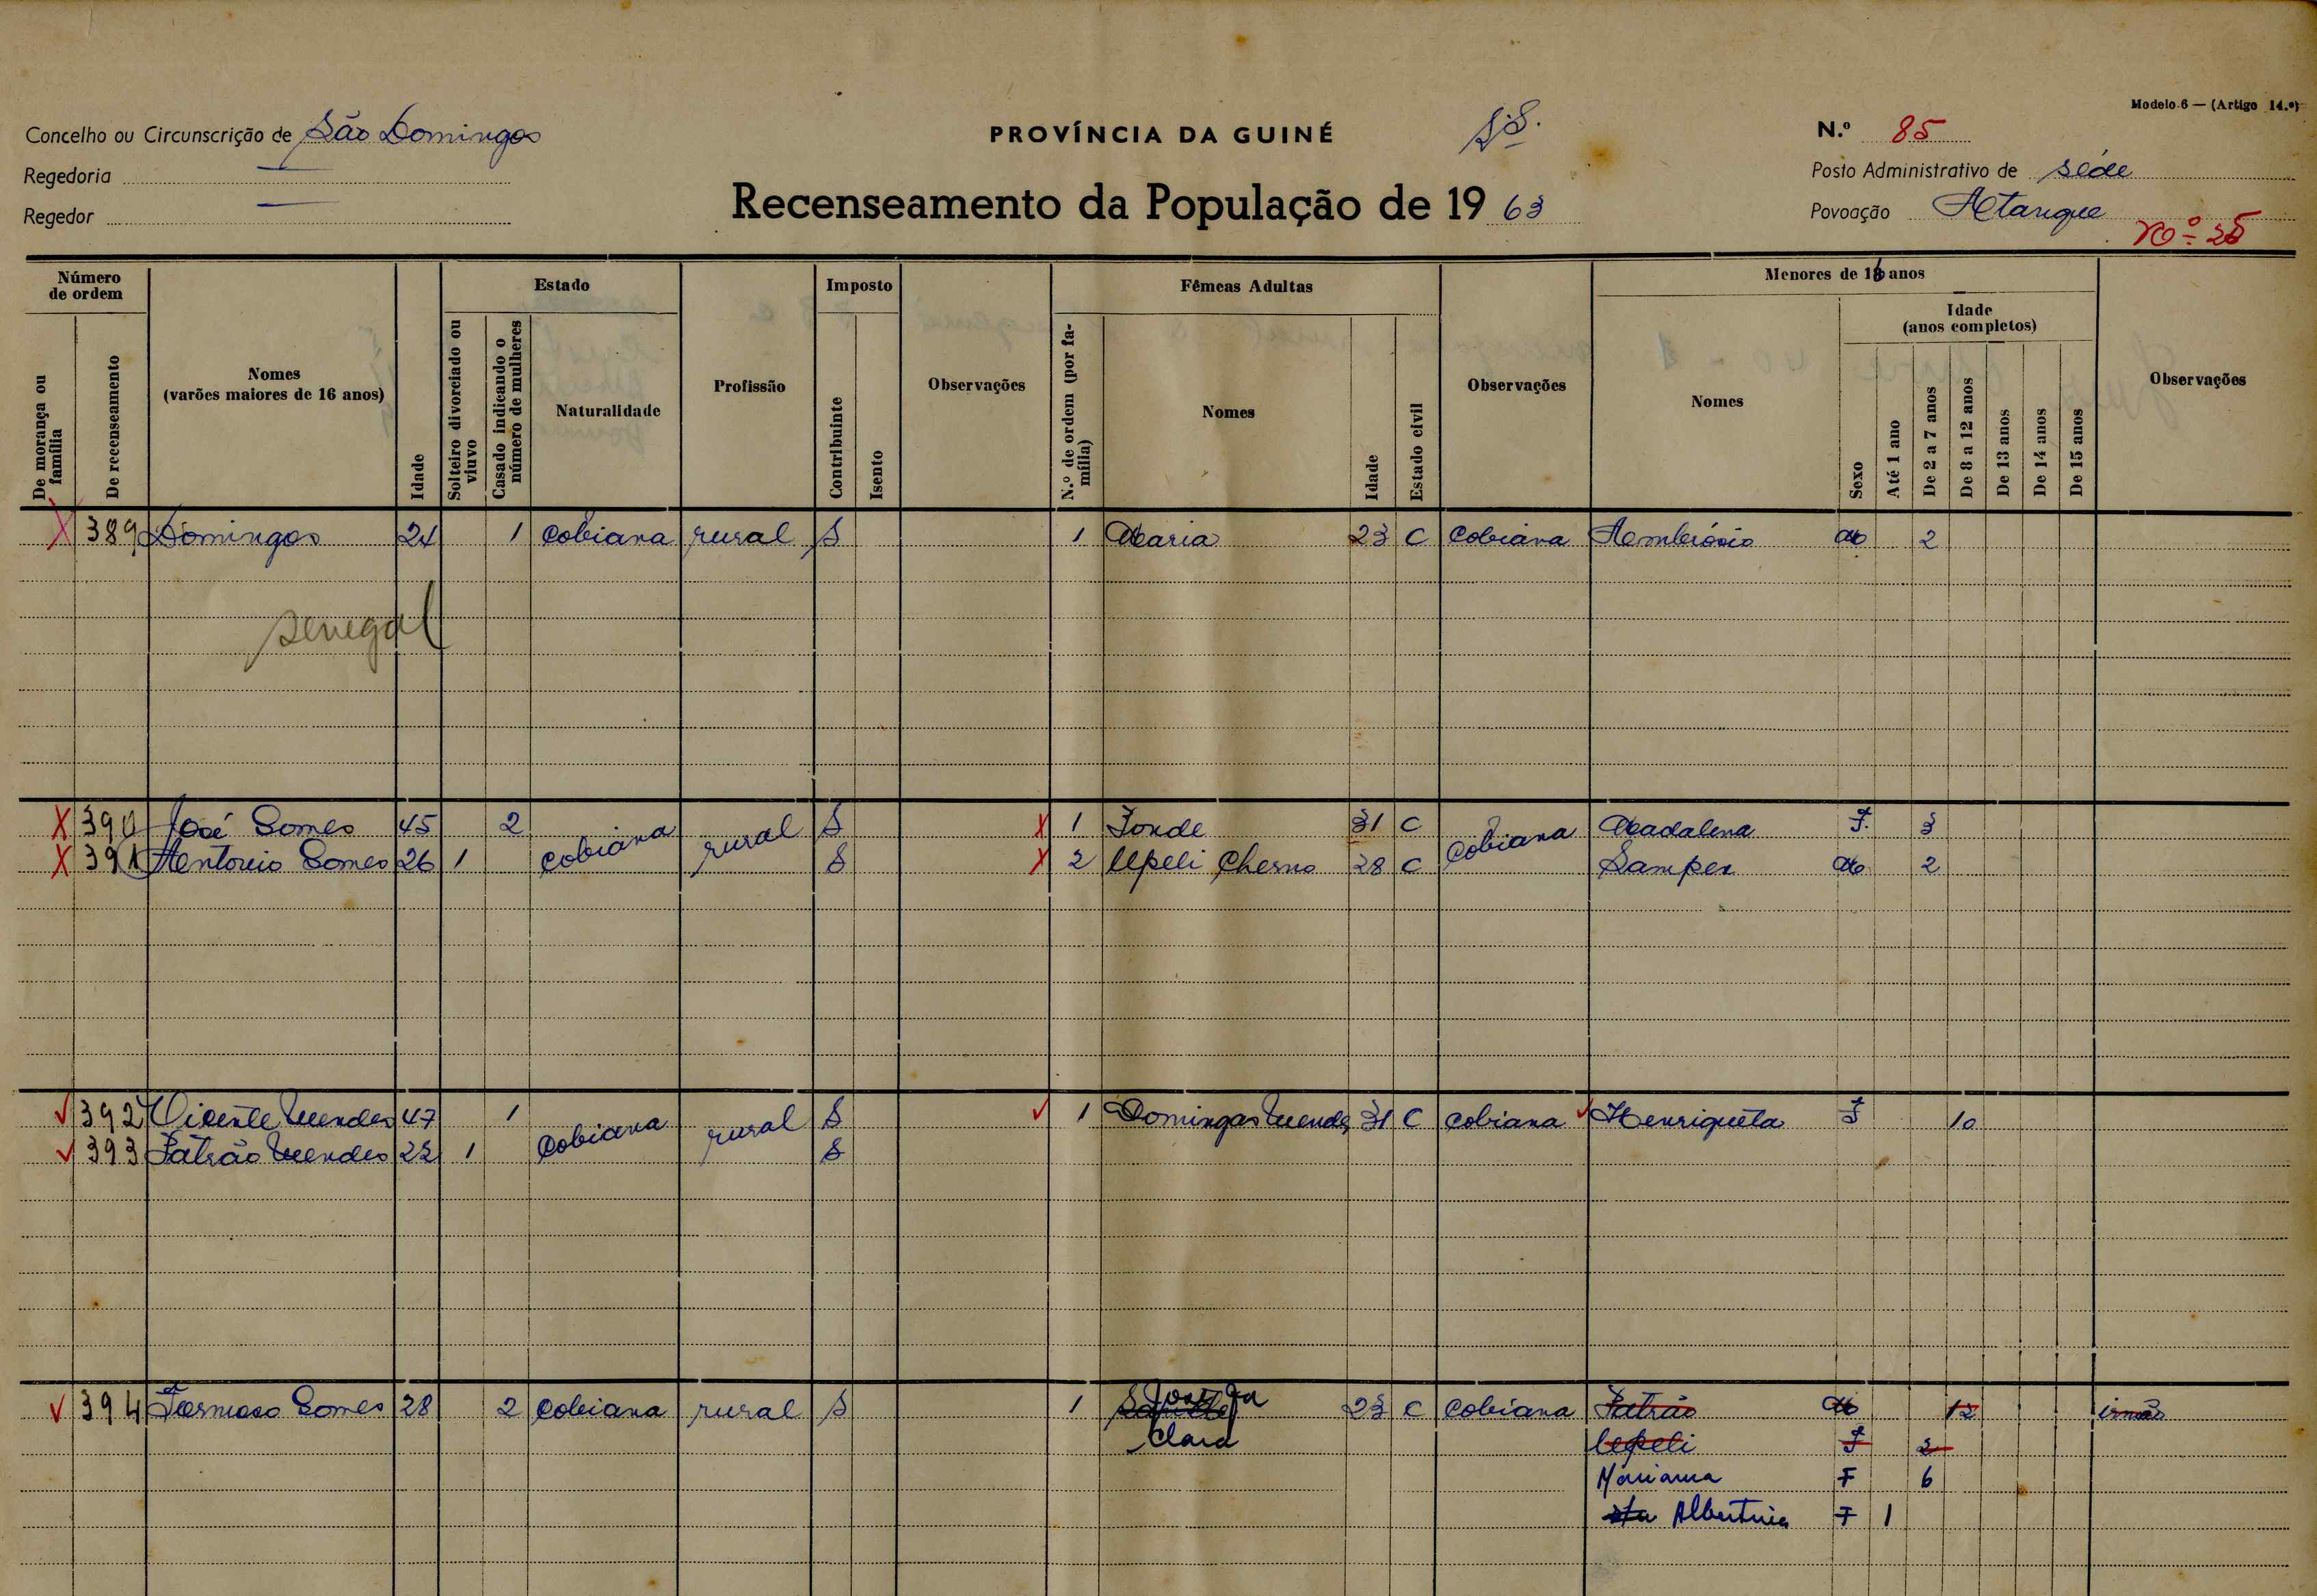 Modelo 6 — (Artigo 14.º)
Concelho ou Circunscrição de São Domingos
PROVÍNCIA DA GUINÉ
N.º 85
Regedoria —
Posto Administrativo de séde
Regedor —
Recenseamento da População de 19 63
Povoação Atanque
Nº 25
Número de ordem
De morança ou família
De recenseamento
Nomes (varões maiores de 16 anos)
Idade
Estado
Solteiro divorciado ou viuvo
Casado indicando o número de mulheres
Naturalidade
Profissão
Imposto
Contribuinte
Isento
Observações
Fêmeas Adultas
N.º de ordem (por família)
Nomes
Idade
Estado civil
Observações
Menores de 16 anos
Nomes
Sexo
Idade (anos completos)
Até 1 ano
De 2 a 7 anos
De 8 a 12 anos
De 13 anos
De 14 anos
De 15 anos
Observações
X 389 Domingos 24 1 Cobiana rural S 1 Maria 23 C Cobiana Ambrósio M 2
senegal
X 390 José Gomes 45 2 Cobiana rural S X 1 Fonde 31 C Cobiana Madalena F. 3
X 391 Antonio Gomes 26 1 S X 2 Upeli Cherno 28 C Sampex M 2
✓ 392 Vicente Mendes 47 1 Cobiana rural S ✓ 1 Domingas Mendes 31 C Cobiana ✓ Henriqueta F 10
✓ 393 Patrão Mendes 22 1 S
✓ 394 Formoso Gomes 28 2 Cobiana rural S 1 23 C Cobiana Patrão M 12 irmão
Clara Upeli F 2
Mariama F 6
Albertina F 1